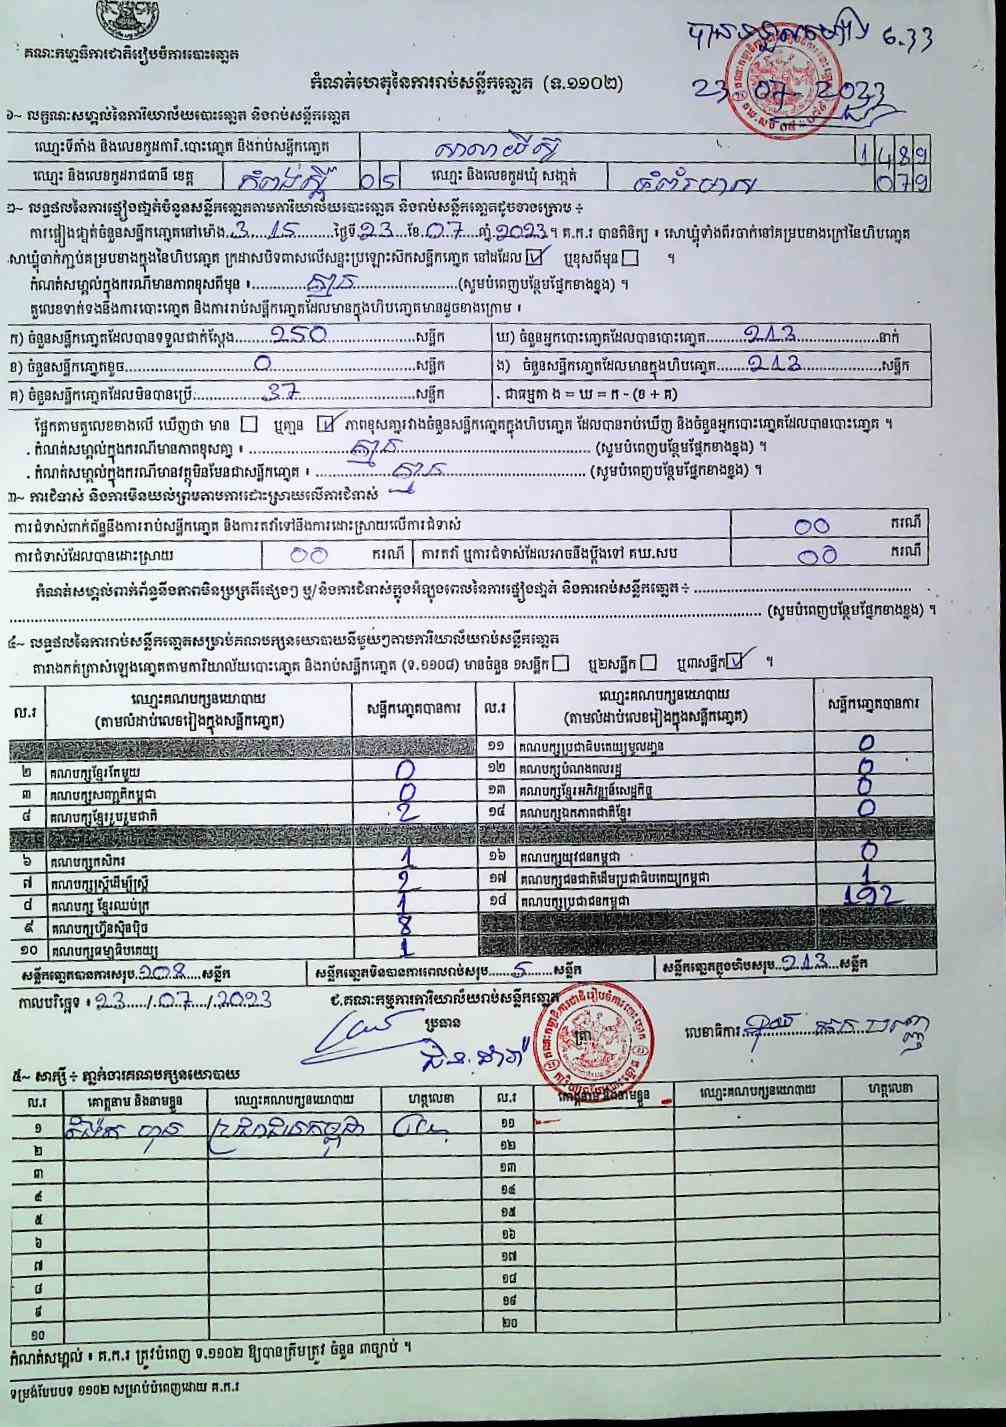 គណៈកម្មាធិការជាតិរៀបចំការបោះឆ្នោត
បានទទួលម៉ោង 6.33
23 07 - 2023
កំណត់ហេតុនៃការរាប់សន្លឹកឆ្នោត (ទ.១១០២)
១~ លក្ខណៈសម្គាល់នៃការិយាល័យបោះឆ្នោត និងរាប់សន្លឹកឆ្នោត
ឈ្មោះទីតាំង និងលេខកូដការិ.បោះឆ្នោត និងរាប់សន្លឹកឆ្នោត 1489
ឈ្មោះ និងលេខកូដរាជធានី ខេត្ត កំពង់ស្ពឺ 05 ឈ្មោះ និងលេខកូដឃុំ សង្កាត់ 079
២~ លទ្ធផលនៃការផ្ទៀងផ្ទាត់ចំនួនសន្លឹកឆ្នោតតាមការិយាល័យបោះឆ្នោត និងរាប់សន្លឹកឆ្នោតដូចខាងក្រោម ÷
ការផ្ទៀងផ្ទាត់ចំនួនសន្លឹកឆ្នោតនៅម៉ោង 3 15 ថ្ងៃទី 23 ខែ 07 ឆ្នាំ 2023 ។ គ.ក.រ បានពិនិត្យ ៖ សោឃ្មុំទាំងពីរចាក់នៅគម្របខាងក្រៅនៃហិបឆ្នោត
សោឃ្មុំចាក់ភ្ជាប់គម្របខាងក្នុងនៃហិបឆ្នោត ក្រដាសបិទពាសលើសន្ទះប្រឡោះស៊កសន្លឹកឆ្នោត នៅដដែល ☑ ឬខុសពីមុន ☐ ។
កំណត់សម្គាល់ក្នុងករណីមានភាពខុសពីមុន ៖ គ្មាន (សូមបំពេញបន្ថែមផ្នែកខាងខ្នង) ។
តួលេខទាក់ទងនឹងការបោះឆ្នោត និងការរាប់សន្លឹកឆ្នោតដែលមានក្នុងហិបឆ្នោតមានដូចខាងក្រោម ៖
ក) ចំនួនសន្លឹកឆ្នោតដែលបានទទួលជាក់ស្តែង 250 សន្លឹក ឃ) ចំនួនអ្នកបោះឆ្នោតដែលបានបោះឆ្នោត 213 នាក់
ខ) ចំនួនសន្លឹកឆ្នោតខូច 0 សន្លឹក ង) ចំនួនសន្លឹកឆ្នោតដែលមានក្នុងហិបឆ្នោត 213 សន្លឹក
គ) ចំនួនសន្លឹកឆ្នោតដែលមិនបានប្រើ 37 សន្លឹក . ជាធម្មតា ង = ឃ = ក - (ខ + គ)
ផ្អែកតាមតួលេខខាងលើ ឃើញថា មាន ☐ ឬគ្មាន ☑ ភាពខុសគ្នារវាងចំនួនសន្លឹកឆ្នោតក្នុងហិបឆ្នោត ដែលបានរាប់ឃើញ និងចំនួនអ្នកបោះឆ្នោតដែលបានបោះឆ្នោត ។
. កំណត់សម្គាល់ក្នុងករណីមានភាពខុសគ្នា ៖ គ្មាន (សូមបំពេញបន្ថែមផ្នែកខាងខ្នង) ។
. កំណត់សម្គាល់ក្នុងករណីមានវត្ថុមិនមែនជាសន្លឹកឆ្នោត ៖ គ្មាន (សូមបំពេញបន្ថែមផ្នែកខាងខ្នង) ។
៣~ ការជំទាស់ និងការមិនយល់ព្រមតាមការដោះស្រាយលើការជំទាស់
ការជំទាស់ពាក់ព័ន្ធនឹងការរាប់សន្លឹកឆ្នោត និងការតវ៉ាទៅនឹងការដោះស្រាយលើការជំទាស់ 00 ករណី
ការជំទាស់ដែលបានដោះស្រាយ 00 ករណី ការតវ៉ា ឬការជំទាស់ដែលអាចនឹងប្តឹងទៅ គឃ.សប 00 ករណី
កំណត់សម្គាល់ពាក់ព័ន្ធនឹងភាពមិនប្រក្រតីផ្សេងៗ ឬ/និងការជំទាស់ក្នុងអំឡុងពេលនៃការផ្ទៀងផ្ទាត់ និងការរាប់សន្លឹកឆ្នោត ÷
(សូមបំពេញបន្ថែមផ្នែកខាងខ្នង) ។
៤~ លទ្ធផលនៃការរាប់សន្លឹកឆ្នោតសម្រាប់គណបក្សនយោបាយនីមួយៗតាមការិយាល័យរាប់សន្លឹកឆ្នោត
តារាងកត់ត្រាសំឡេងឆ្នោតតាមការិយាល័យបោះឆ្នោត និងរាប់សន្លឹកឆ្នោត (ទ.១១០៨) មានចំនួន ១សន្លឹក ☐ ឬ២សន្លឹក ☐ ឬ៣សន្លឹក ☑ ។
ល.រ ឈ្មោះគណបក្សនយោបាយ (តាមលំដាប់លេខរៀងក្នុងសន្លឹកឆ្នោត) សន្លឹកឆ្នោតបានការ ល.រ ឈ្មោះគណបក្សនយោបាយ (តាមលំដាប់លេខរៀងក្នុងសន្លឹកឆ្នោត) សន្លឹកឆ្នោតបានការ
១១ គណបក្សប្រជាធិបតេយ្យមូលដ្ឋាន 0
២ គណបក្សខ្មែរតែមួយ 0 ១២ គណបក្សបំណងពលរដ្ឋ 0
៣ គណបក្សសញ្ជាតិកម្ពុជា 0 ១៣ គណបក្សខ្មែរអភិវឌ្ឍន៍សេដ្ឋកិច្ច 0
៤ គណបក្សខ្មែររួបរួមជាតិ 2 ១៤ គណបក្សឯកភាពជាតិខ្មែរ 0
៦ គណបក្សកសិករ 1 ១៦ គណបក្សយុវជនកម្ពុជា 0
៧ គណបក្សស្ត្រីដើម្បីស្ត្រី 2 ១៧ គណបក្សជនជាតិដើមប្រជាធិបតេយ្យកម្ពុជា 1
៨ គណបក្ស ខ្មែរឈប់ក្រ 1 ១៨ គណបក្សប្រជាជនកម្ពុជា 192
៩ គណបក្សហ៊្វុនស៊ិនប៉ិច 8
១០ គណបក្សធម្មាធិបតេយ្យ 1
សន្លឹកឆ្នោតបានការសរុប 208 សន្លឹក សន្លឹកឆ្នោតមិនបានការពេលរាប់សរុប 5 សន្លឹក សន្លឹកឆ្នោតក្នុងហិបសរុប 213 សន្លឹក
កាលបរិច្ឆេទ ៖ 23 / 07 / 2023 ជ.គណៈកម្មការការិយាល័យរាប់សន្លឹកឆ្នោត
ប្រធាន ត្រា លេខាធិការ
៥~ សាក្សី ÷ ភ្នាក់ងារគណបក្សនយោបាយ
ល.រ គោត្តនាម និងនាមខ្លួន ឈ្មោះគណបក្សនយោបាយ ហត្ថលេខា ល.រ គោត្តនាម និងនាមខ្លួន ឈ្មោះគណបក្សនយោបាយ ហត្ថលេខា
១ ប្រជាជនកម្ពុជា ១១
២ ១២
៣ ១៣
៤ ១៤
៥ ១៥
៦ ១៦
៧ ១៧
៨ ១៨
៩ ១៩
១០ ២០
កំណត់សម្គាល់ ៖ គ.ក.រ ត្រូវបំពេញ ទ.១១០២ ឱ្យបានត្រឹមត្រូវ ចំនួន ៣ច្បាប់ ។
ទម្រង់បែបបទ ១១០២ សម្រាប់បំពេញដោយ គ.ក.រ